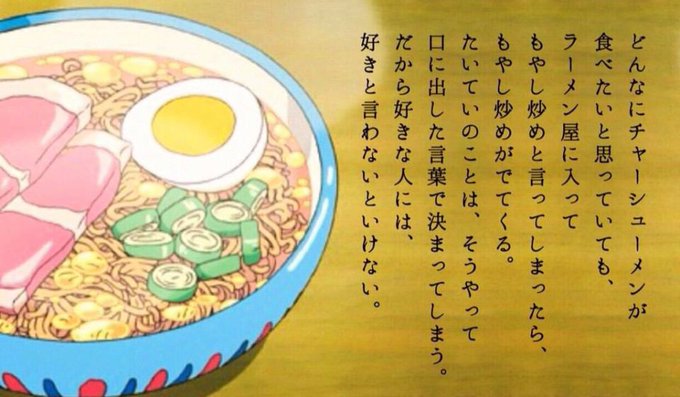 どんなにチャーシューメンが
食べたいと思っていても、
ラーメン屋に入って
もやし炒めと言ってしまったら、
もやし炒めがでてくる。
たいていのことは、そうやって
口に出した言葉で決まってしまう。
だから好きな人には、
好きと言わないといけない。